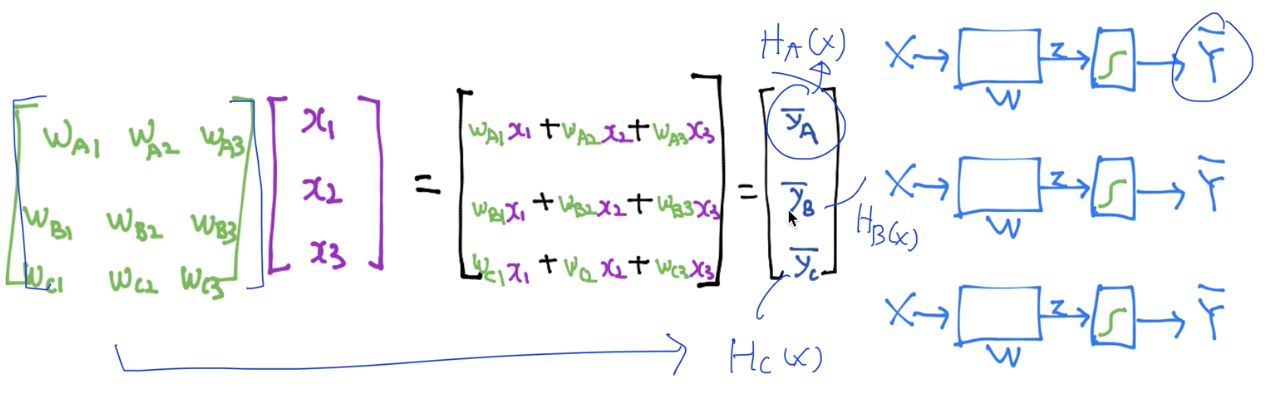 H_A(x)
X → W z → ∫ → Ȳ
w_A1 w_A2 w_A3
w_B1 w_B2 w_B3
w_C1 w_C2 w_C3
x_1
x_2
x_3
=
w_A1x_1 + w_A2x_2 + w_A3x_3
w_B1x_1 + w_B2x_2 + w_B3x_3
w_C1x_1 + w_C2x_2 + w_C3x_3
=
ȳ_A
ȳ_B
ȳ_C
H_B(x)
H_C(x)
X → W z → ∫ → Ȳ
X → W z → ∫ → Ȳ